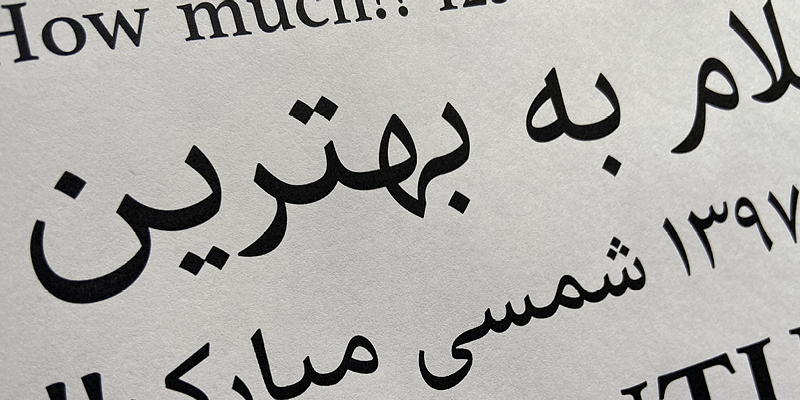 How much
لام به بهترین
۱۳۹۷ شمسی مبارک